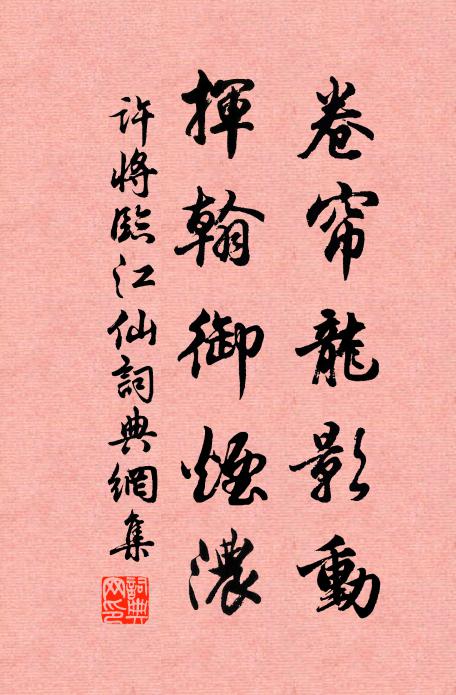 卷帘龍影動
揮翰御煙濃
許將臨江仙詞典網集
詞典网印